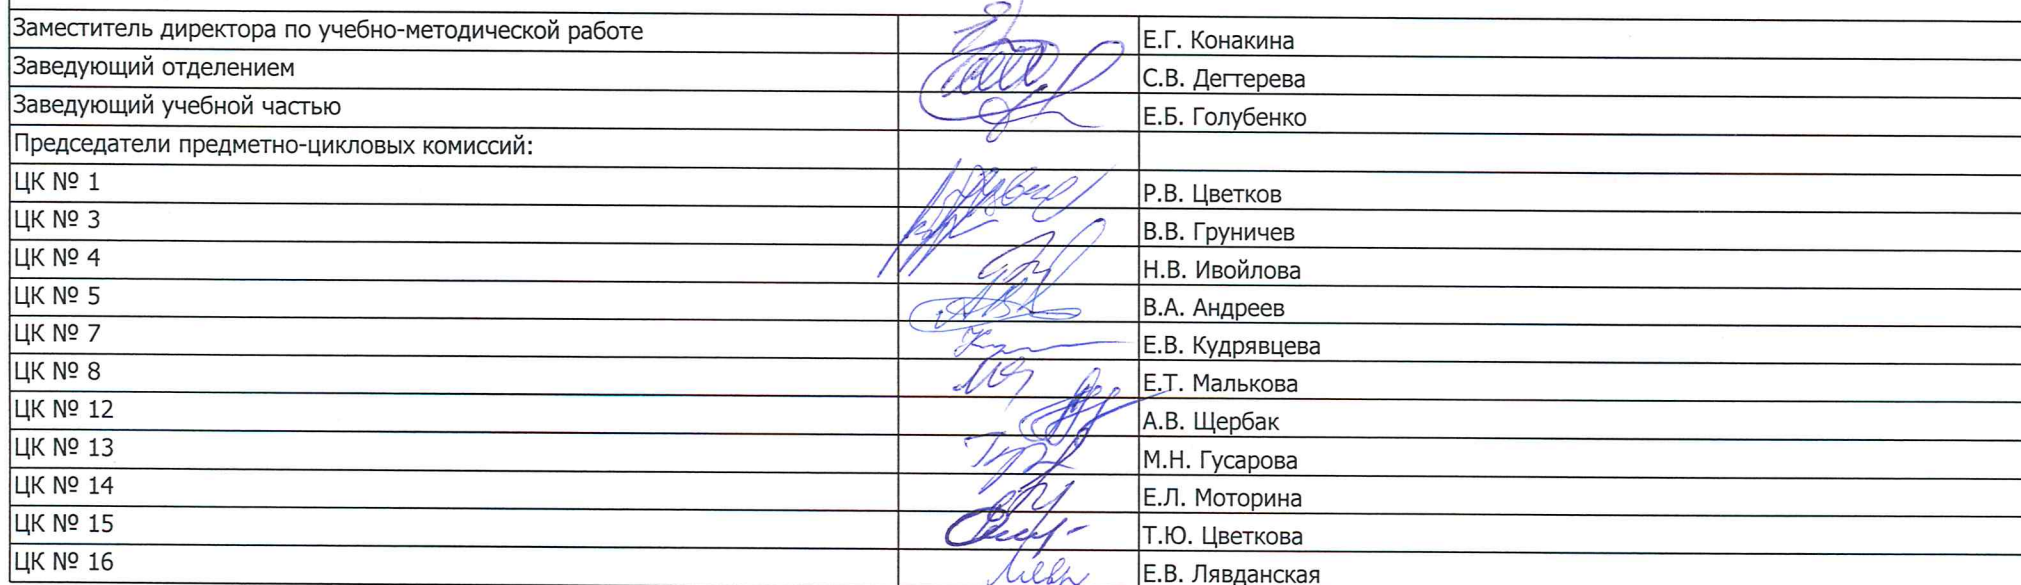 Заместитель директора по учебно-методической работе Е.Г. Конакина
Заведующий отделением С.В. Дегтерева
Заведующий учебной частью Е.Б. Голубенко
Председатели предметно-цикловых комиссий:
ЦК № 1 Р.В. Цветков
ЦК № 3 В.В. Груничев
ЦК № 4 Н.В. Ивойлова
ЦК № 5 В.А. Андреев
ЦК № 7 Е.В. Кудрявцева
ЦК № 8 Е.Т. Малькова
ЦК № 12 А.В. Щербак
ЦК № 13 М.Н. Гусарова
ЦК № 14 Е.Л. Моторина
ЦК № 15 Т.Ю. Цветкова
ЦК № 16 Е.В. Лявданская